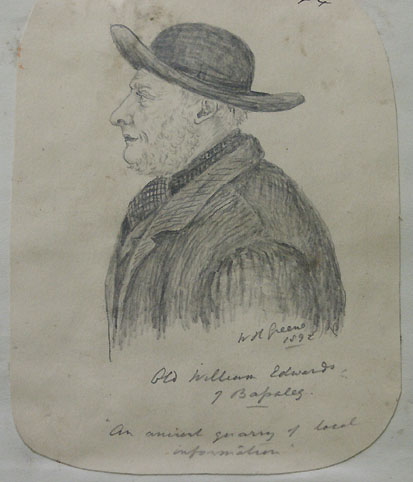 W H Greene
1892
Old William Edwards
of Bassaleg.
"An ancient quarry of local
information"